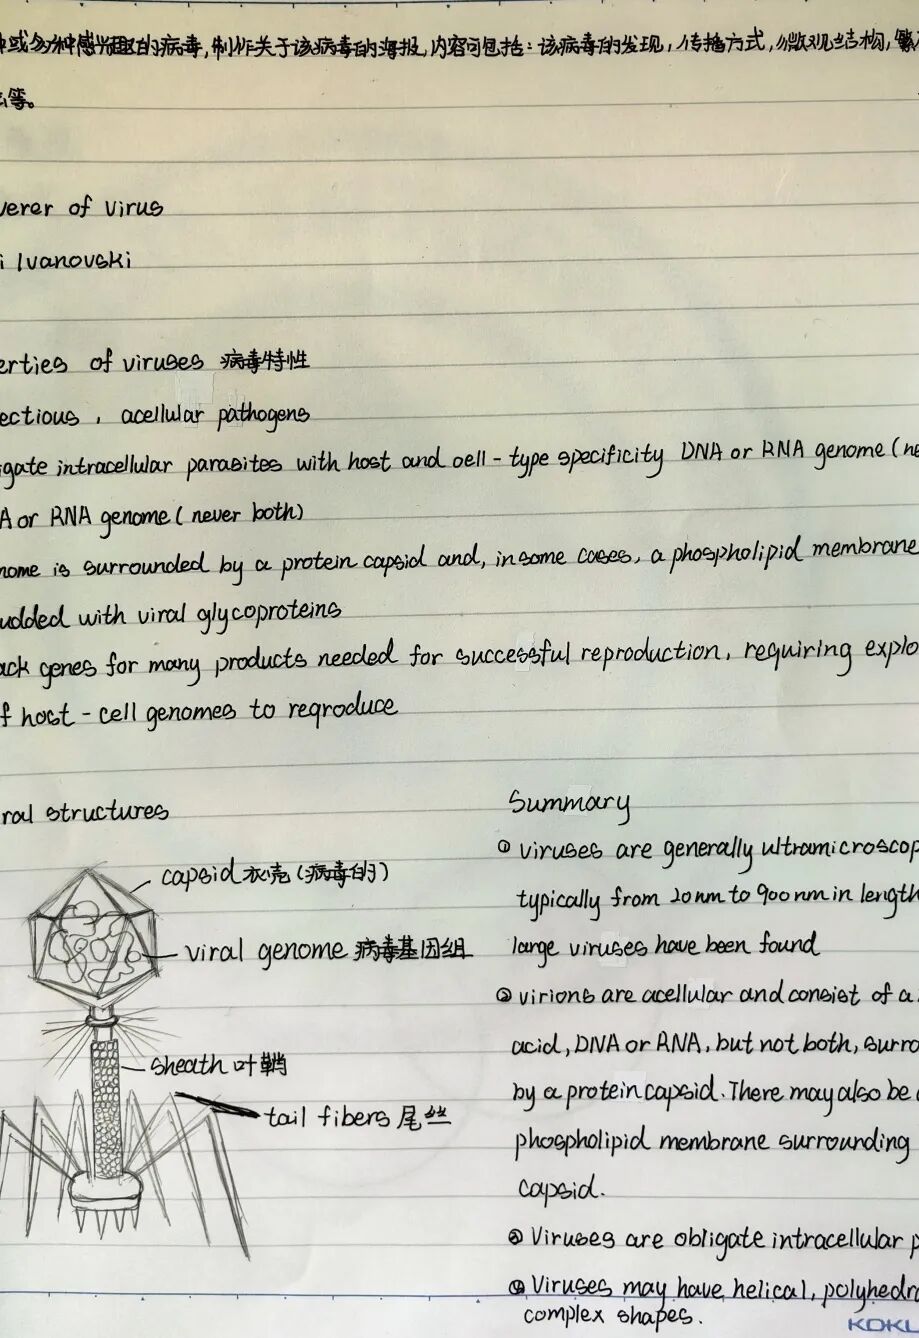 或多种感兴趣的病毒,制作关于该病毒的海报,内容可包括:该病毒的发现,传播方式,微观结构,繁
等。
verer of virus
i Ivanovski
erties of viruses 病毒特性
ectious , acellular pathogens
igate intracellular parasites with host and cell-type specificity DNA or RNA genome (ne
A or RNA genome (never both)
nome is surrounded by a protein capsid and, in some cases, a phospholipid membrane
udded with viral glycoproteins
ack genes for many products needed for successful reproduction, requiring explo
f host-cell genomes to reqroduce
ral structures
capsid 衣壳(病毒的)
viral genome 病毒基因组
sheath 叶鞘
tail fibers 尾丝
Summary
① viruses are generally ultramicroscop
typically from 20nm to 900nm in length
large viruses have been found
② virions are acellular and consist of a
acid, DNA or RNA, but not both, surro
by a protein capsid. There may also be
phospholipid membrane surrounding
capsid.
③ Viruses are obligate intracellular p
④ Viruses may have helical, polyhedra
complex shapes.
KOKU